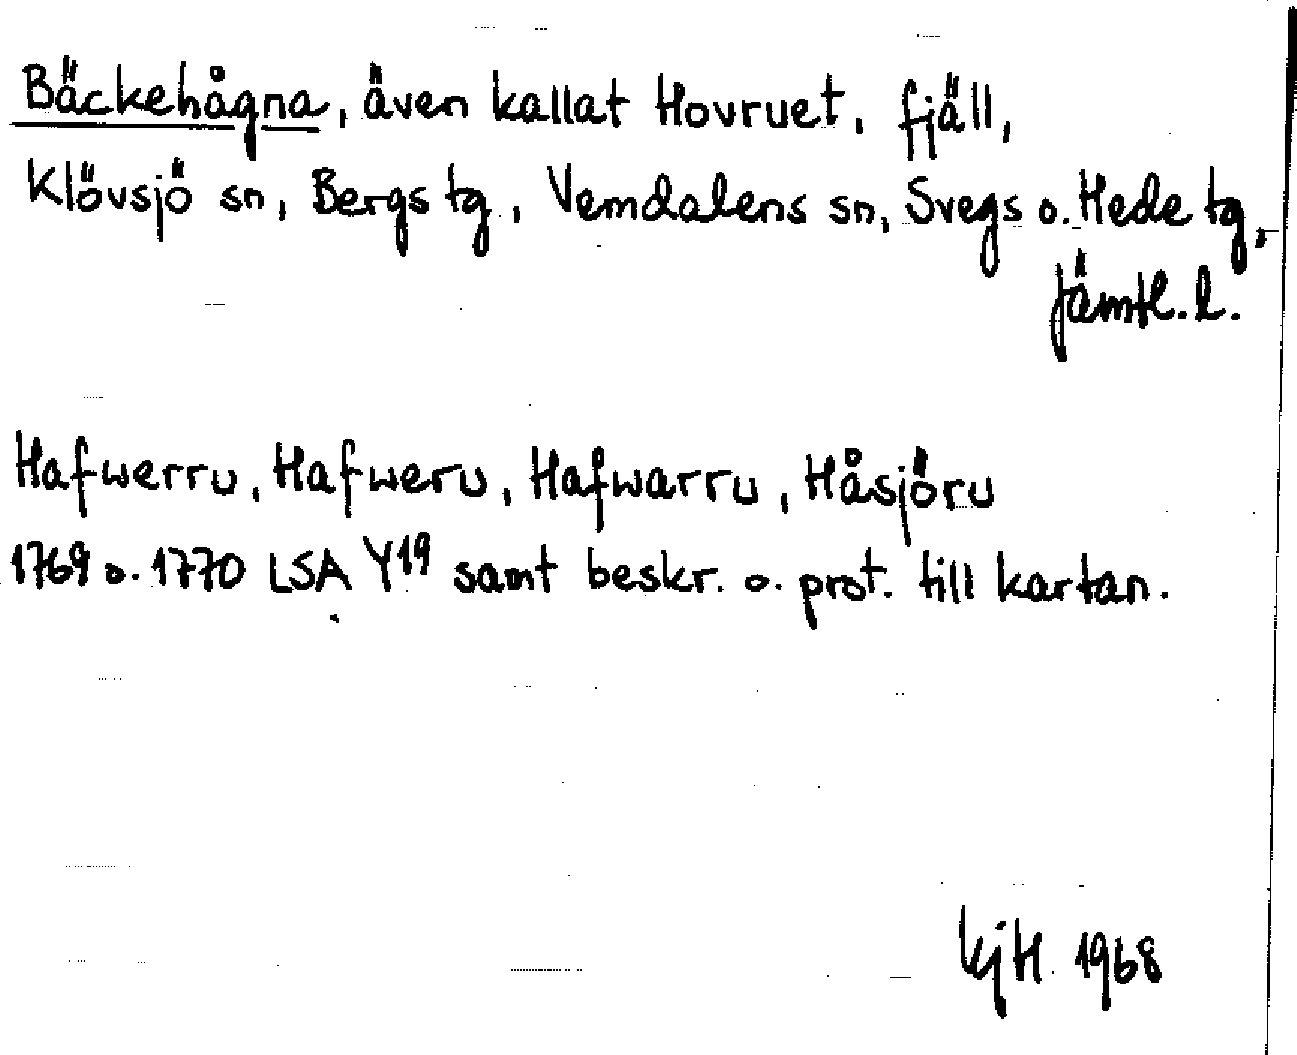 Bäckehågna, även kallat Hovruet, fjäll,
Klövsjö sn, Bergs tg, Vemdalens sn, Svegs o. Hede tg,
Jämtl. l.
Hafwerru, Hafweru, Hafwarru, Håsjöru
1769 o. 1770 LSA Y19 samt beskr. o. prot. till kartan.
KjH 1968